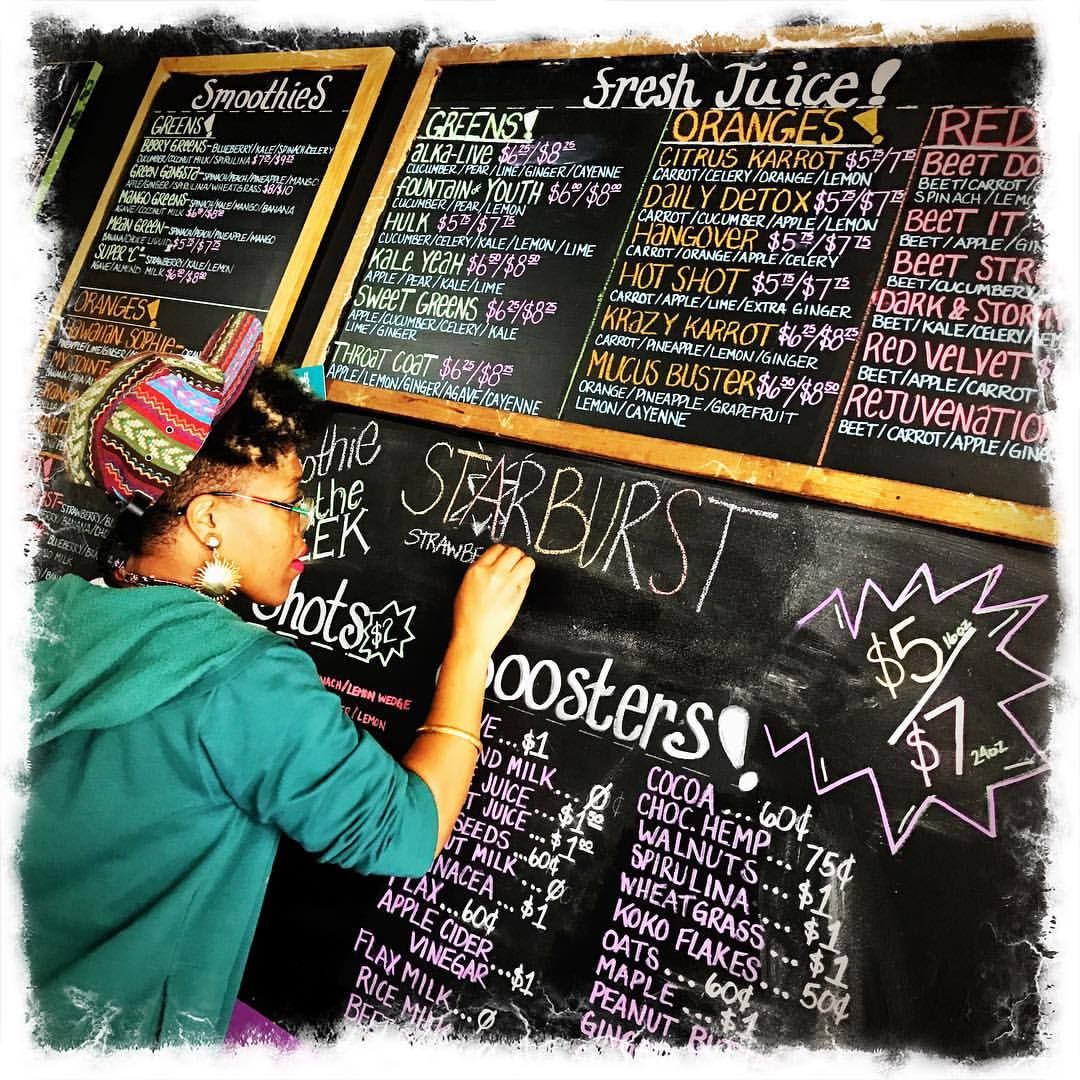 Smoothies
GREENS!
BERRY GREENS-BLUEBERRY/KALE/SPINACH/CELERY
CUCUMBER/COCONUT MILK/SPIRULINA
GREEN GANGSTA-SPINACH/PEACH/PINEAPPLE/MANGO
APPLE/GINGER/SPIRULINA/WHEATGRASS $8/$10
MANGO GREENS-SPINACH/KALE/MANGO/BANANA
AGAVE/COCONUT MILK
MEAN GREEN-SPINACH/PEACH/PINEAPPLE/MANGO
BANANA/CHOICE LIQUID $5.75/$7.75
SUPER "C"-STRAWBERRY/KALE/LEMON
AGAVE/ALMOND MILK
ORANGES
HAWAIIAN SOPHIE-
PINEAPPLE/LIME/GINGER/
MY JOINT
fresh Juice!
GREENS!
ALKA-LIVE $6.25/$8.25
CUCUMBER/PEAR/LIME/GINGER/CAYENNE
fOUNTAIN of YOUTH $6.00/$8.00
CUCUMBER/PEAR/LEMON
HULK $5.75/$7.75
CUCUMBER/CELERY/KALE/LEMON/LIME
KALE YEAH $6.50/$8.50
APPLE/PEAR/KALE/LIME
SWEET GREENS $6.25/$8.25
APPLE/CUCUMBER/CELERY/KALE
LIME/GINGER
THROAT COAT $6.25/$8.25
APPLE/LEMON/GINGER/AGAVE/CAYENNE
ORANGES!
CITRUS KARROT $5.75/7.75
CARROT/CELERY/ORANGE/LEMON
DAILY DETOX $5.75/$7.75
CARROT/CUCUMBER/APPLE/LEMON
HANGOVER $5.75/$7.75
CARROT/ORANGE/APPLE/CELERY
HOT SHOT $5.75/$7.75
CARROT/APPLE/LIME/EXTRA GINGER
KRAZY KARROT $6.25/$8.25
CARROT/PINEAPPLE/LEMON/GINGER
MUCUS BUSTER $6.50/$8.50
ORANGE/PINEAPPLE/GRAPEFRUIT
LEMON/CAYENNE
RED
BEET DO
BEET/CARROT/
SPINACH/LEM
BEET IT
BEET/APPLE/GIN
BEET STR
BEET/CUCUMBER
DARK & STORM
BEET/KALE/CELERY/
RED VELVET
BEET/APPLE/CARROT
REJUVENATIO
BEET/CARROT/APPLE/GING
othie
the
EEK
STARBURST
STRAWBE
Shots $2
NACH/LEMON WEDGE
/LEMON
Boosters!
VE...$1
ND MILK...Ø
JUICE...$1.00
T JUICE...$1.00
SEEDS...60¢
UT MILK...Ø
NACEA...$1
FLAX...60¢
APPLE CIDER
VINEGAR...$1
FLAX MILK...Ø
RICE MILK
COCOA...60¢
CHOC. HEMP...75¢
WALNUTS...$1
SPIRULINA...$1
WHEATGRASS...$1
KOKO FLAKES...50¢
OATS...60¢
MAPLE...$1
PEANUT
GING
$5 16oz
$7 24oz